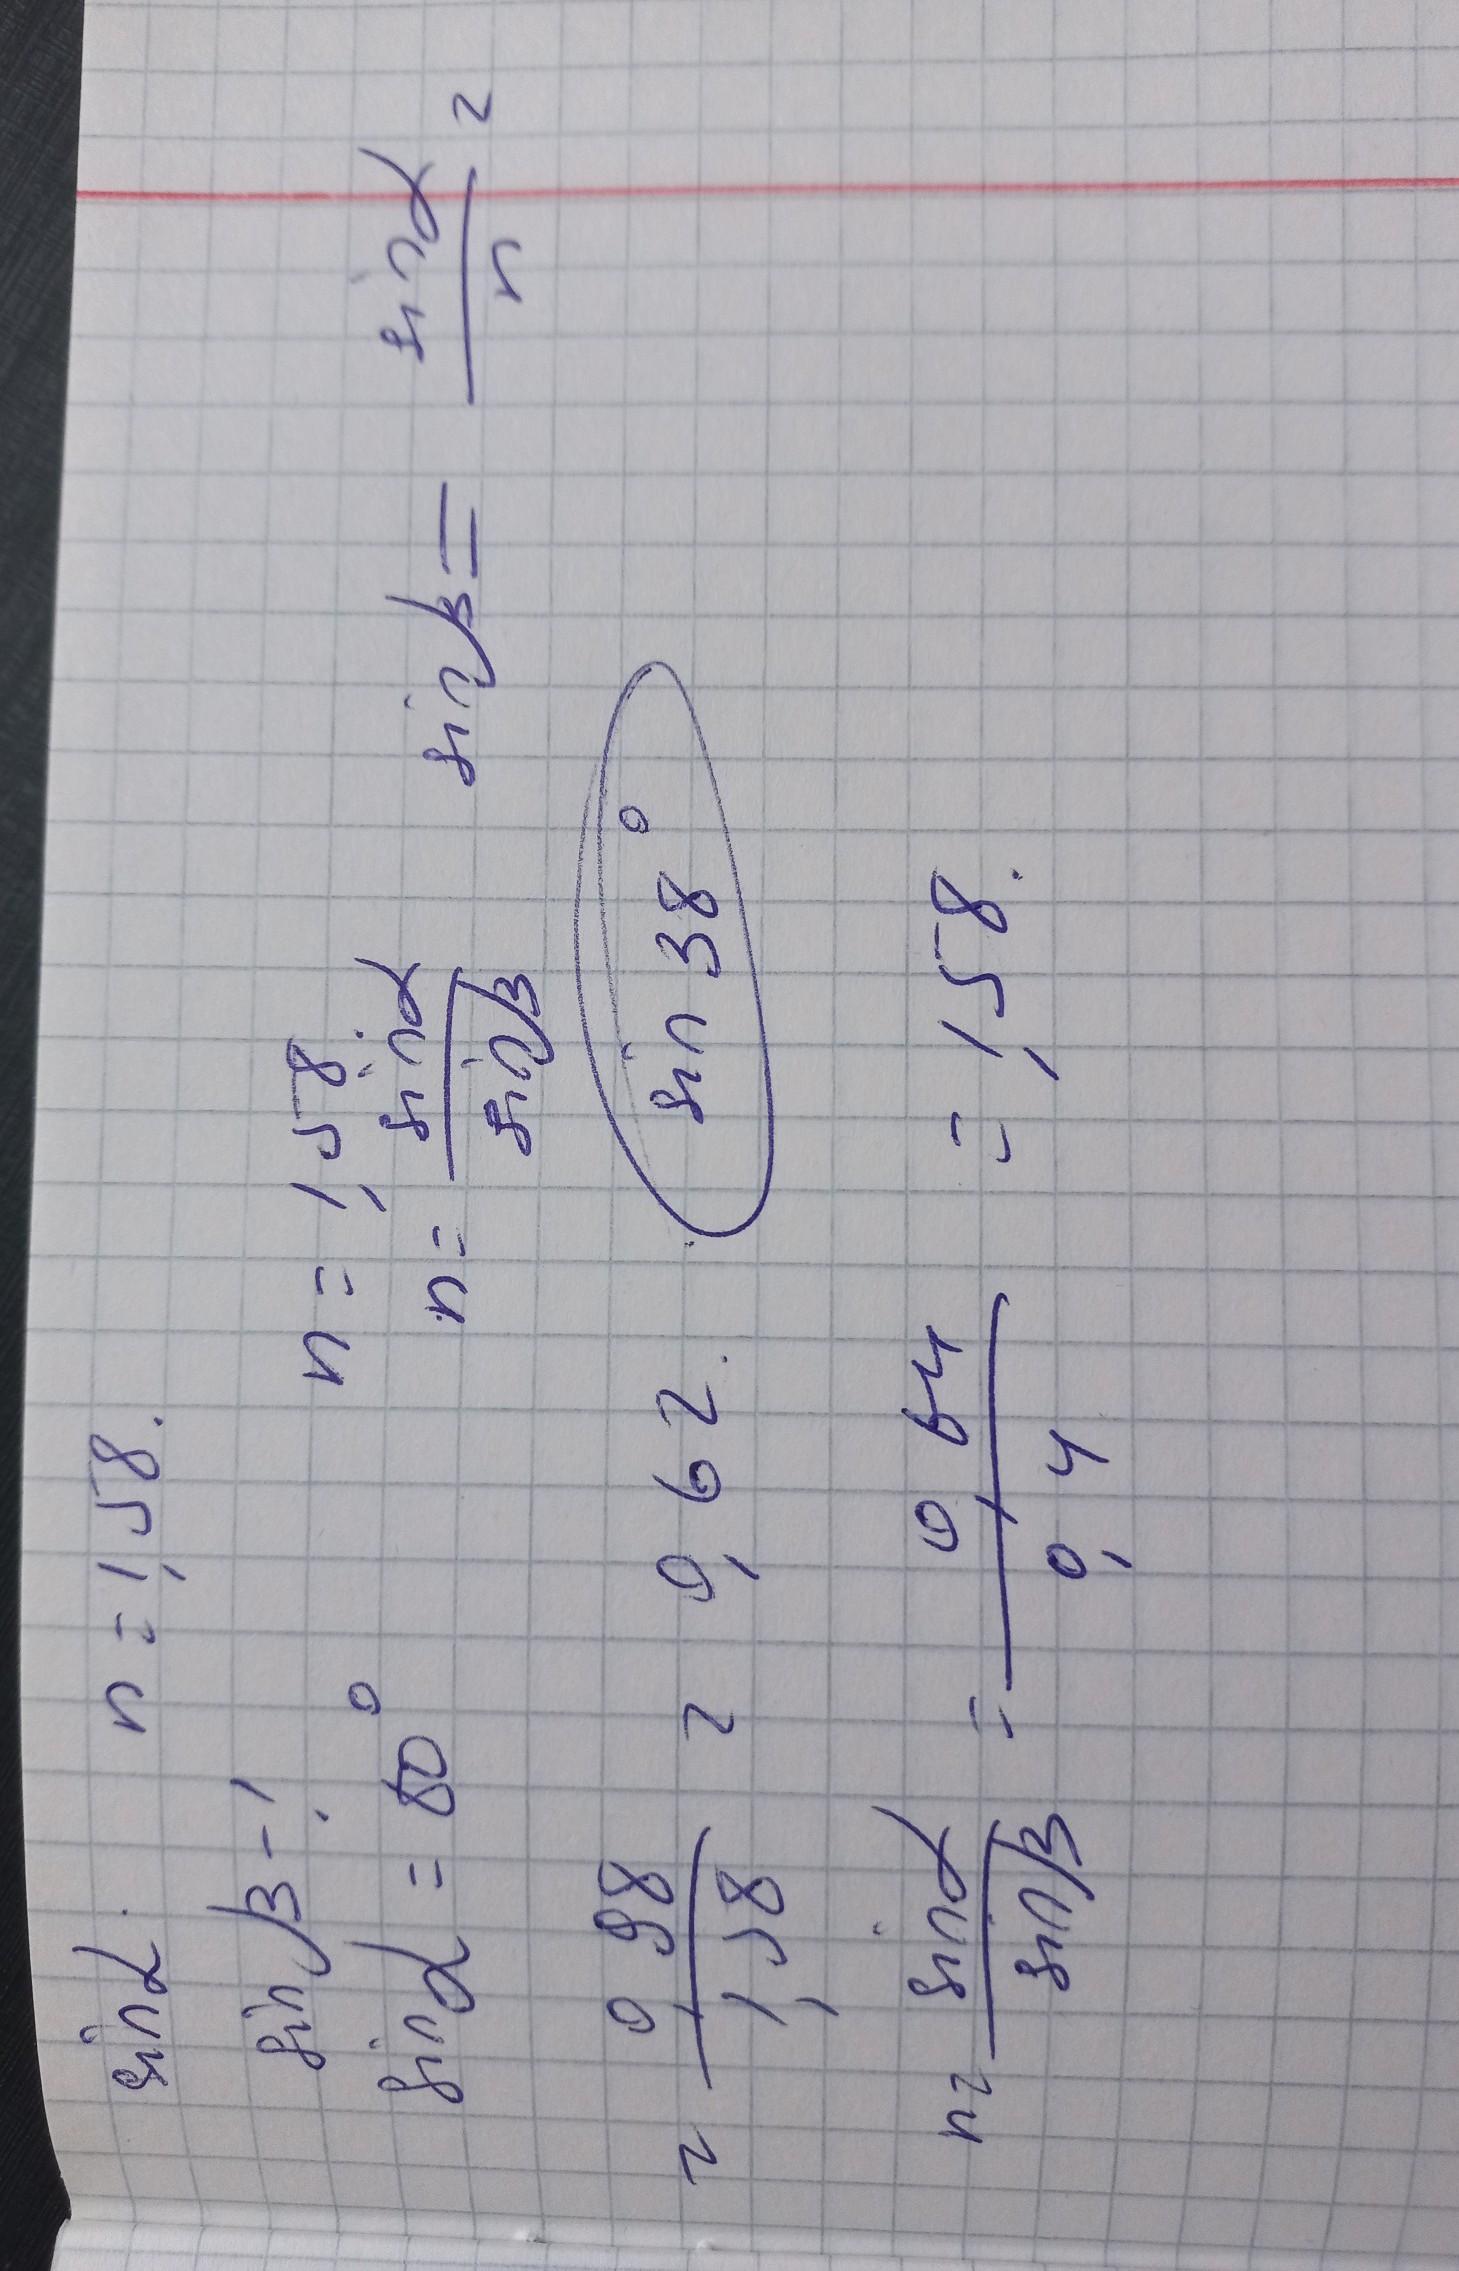 sinα. n = 1,58.
sinβ - ?
n = 1,58.
sinα = 80° n = sinα/sinβ sinβ = sinα/n =
= 0,98/1,58 = 0,62. sin 38°
n = sinα/sinβ = 0,64/0,4 = 1,58.